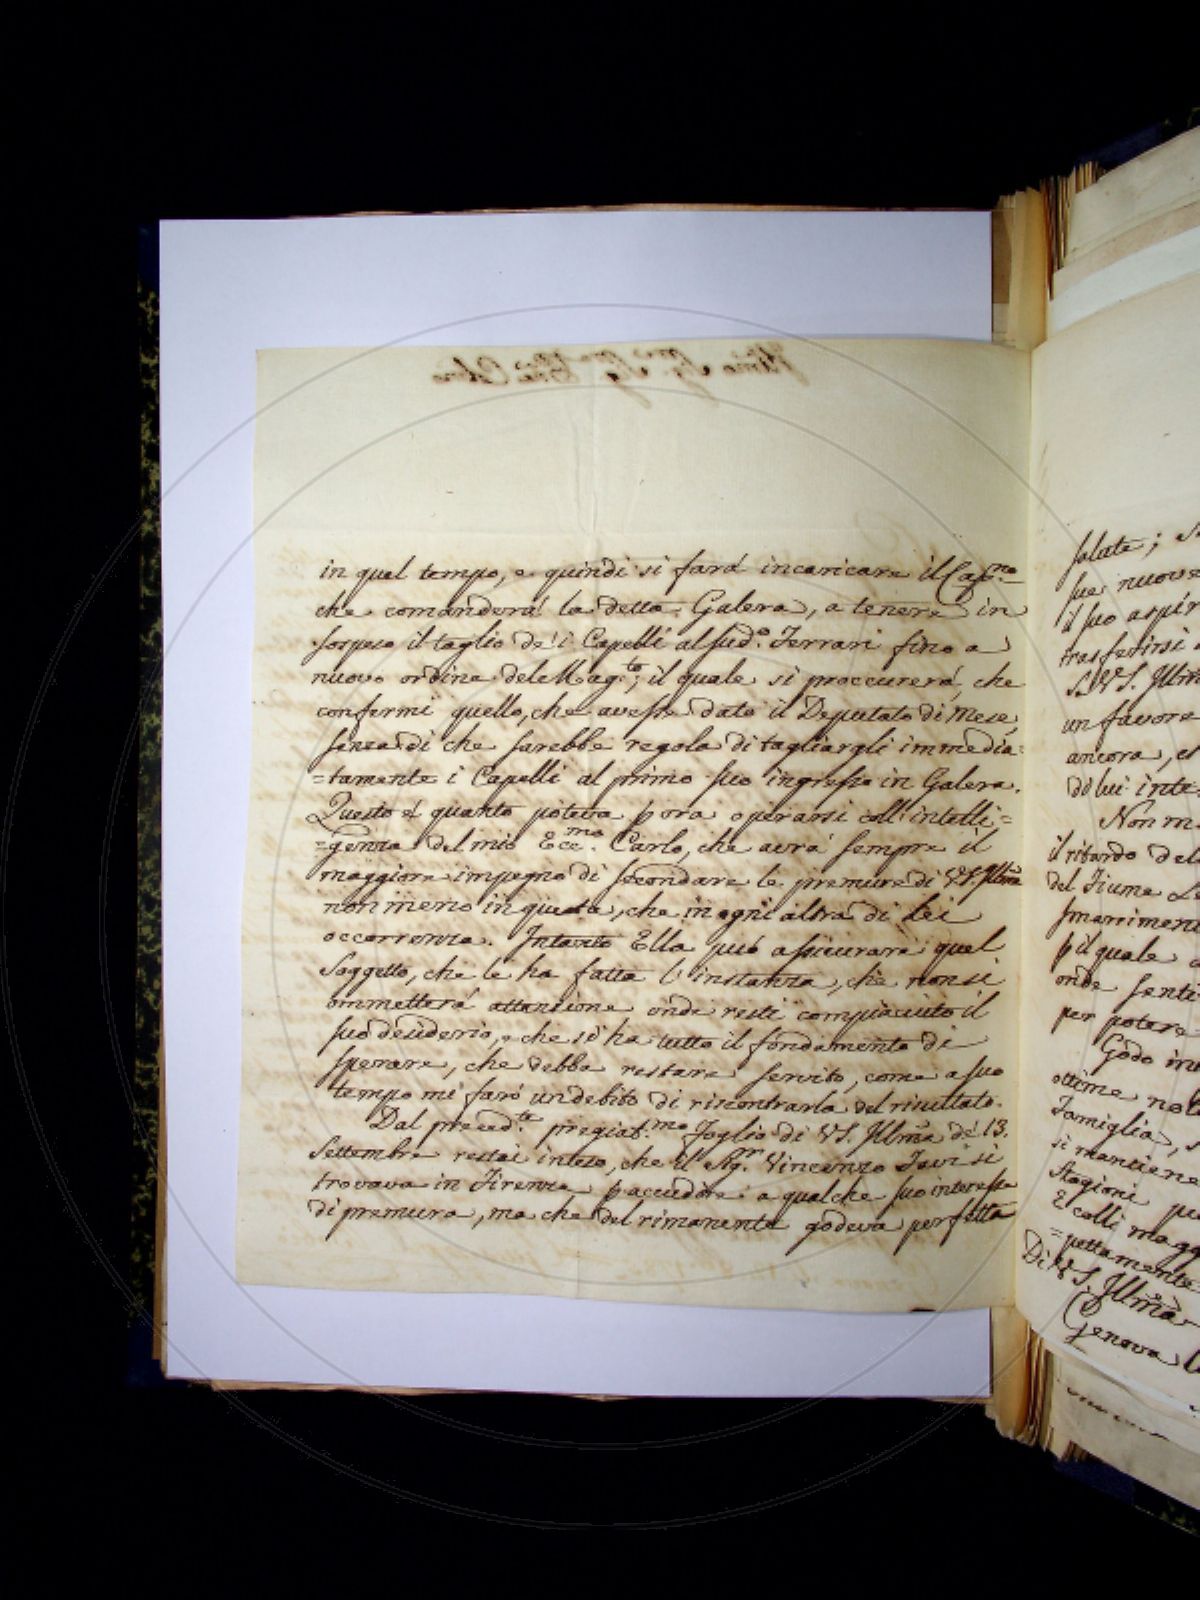 in quel tempo, e quindi si fará incaricare il Cap.no
che comanderá la detta Galera, a tenere in
sospeso il taglio de' i Capelli al sud.o Ferrari fino a
nuovo ordine del Mag.to, il quale si proccurerá, che
confermi quello, che avesse dato il Deputato di Mese,
senza di che sarebbe regola di tagliargli immedia=
=tamente i Capelli al primo suo ingresso in Galera.
Questo é quanto poteva p ora operarsi coll' intelli=
=genza del mio Ecc.mo Carlo, che avrá sempre il
maggiore impegno di secondare le premure di VS. Illma
non meno in questa, che in ogni altra di Lei
occorrenza. Intanto Ella può assicurare quel
Soggetto, che le ha fatta l' instanza, che non si
ommetterá attenzione onde resti compiaciuto il
suo desiderio, e che si ha tutto il fondamento di
sperare, che debba restare servito, come a suo
tempo mi faró un debito di rincontrarla del risultato.
Dal preced.te pregiat.mo Foglio di VS. Illma de' 13.
Settembre restai inteso, che il Sig.r Vincenzo Favi si
trovava in Firenze p accudire a qualche suo interesse
di premura, ma che del rimanente godeva perfetta
salute;
sue nuove
il suo
trasferirsi
VS. Illm
un favore
ancora,
di lui inte
Non m
il ritardo del
del Fiume
smarriment
p il quale
onde senti
per potere
Godo
ottime
Famiglia,
si mantiene
Stagioni
E colli magg
=pettamente
Di VS. Illma
Genova